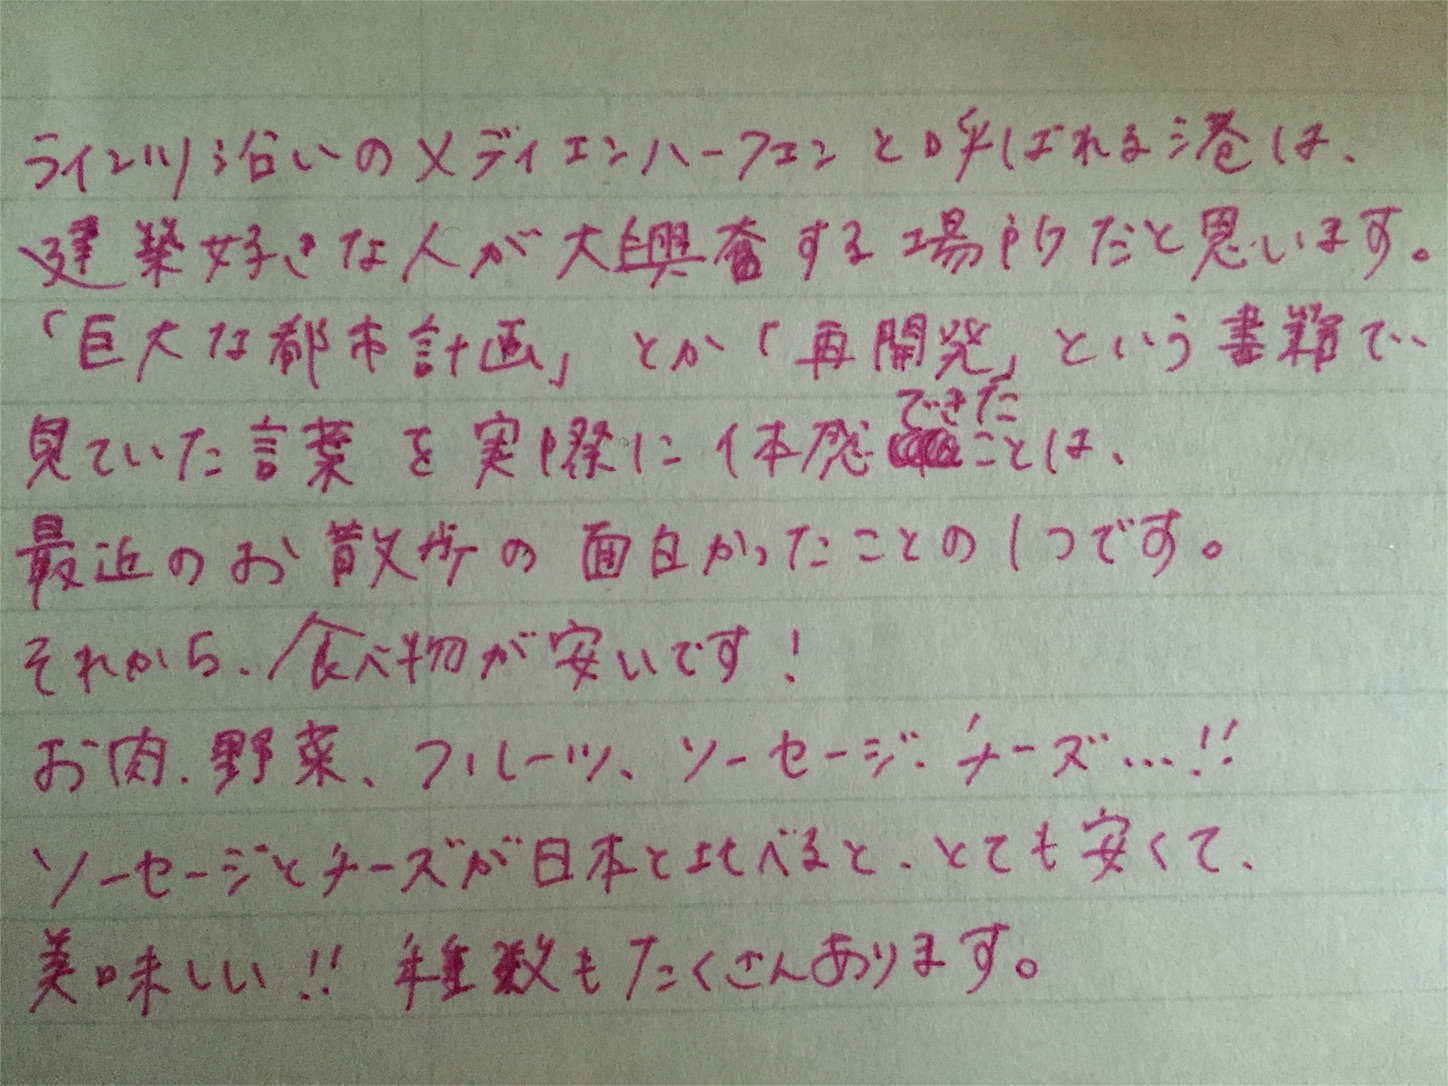 ライン川沿いのメディエンハーフェンと呼ばれる港は、
建築好きな人が大興奮する場所だと思います。
「巨大な都市計画」とか「再開発」という書籍で
見ていた言葉を実際に体感できたことは、
最近のお散歩の面白かったことの1つです。
それから、食べ物が安いです!
お肉、野菜、フルーツ、ソーセージ、チーズ…!!
ソーセージとチーズが日本と比べると、とても安くて、
美味しい!! 種数もたくさんあります。